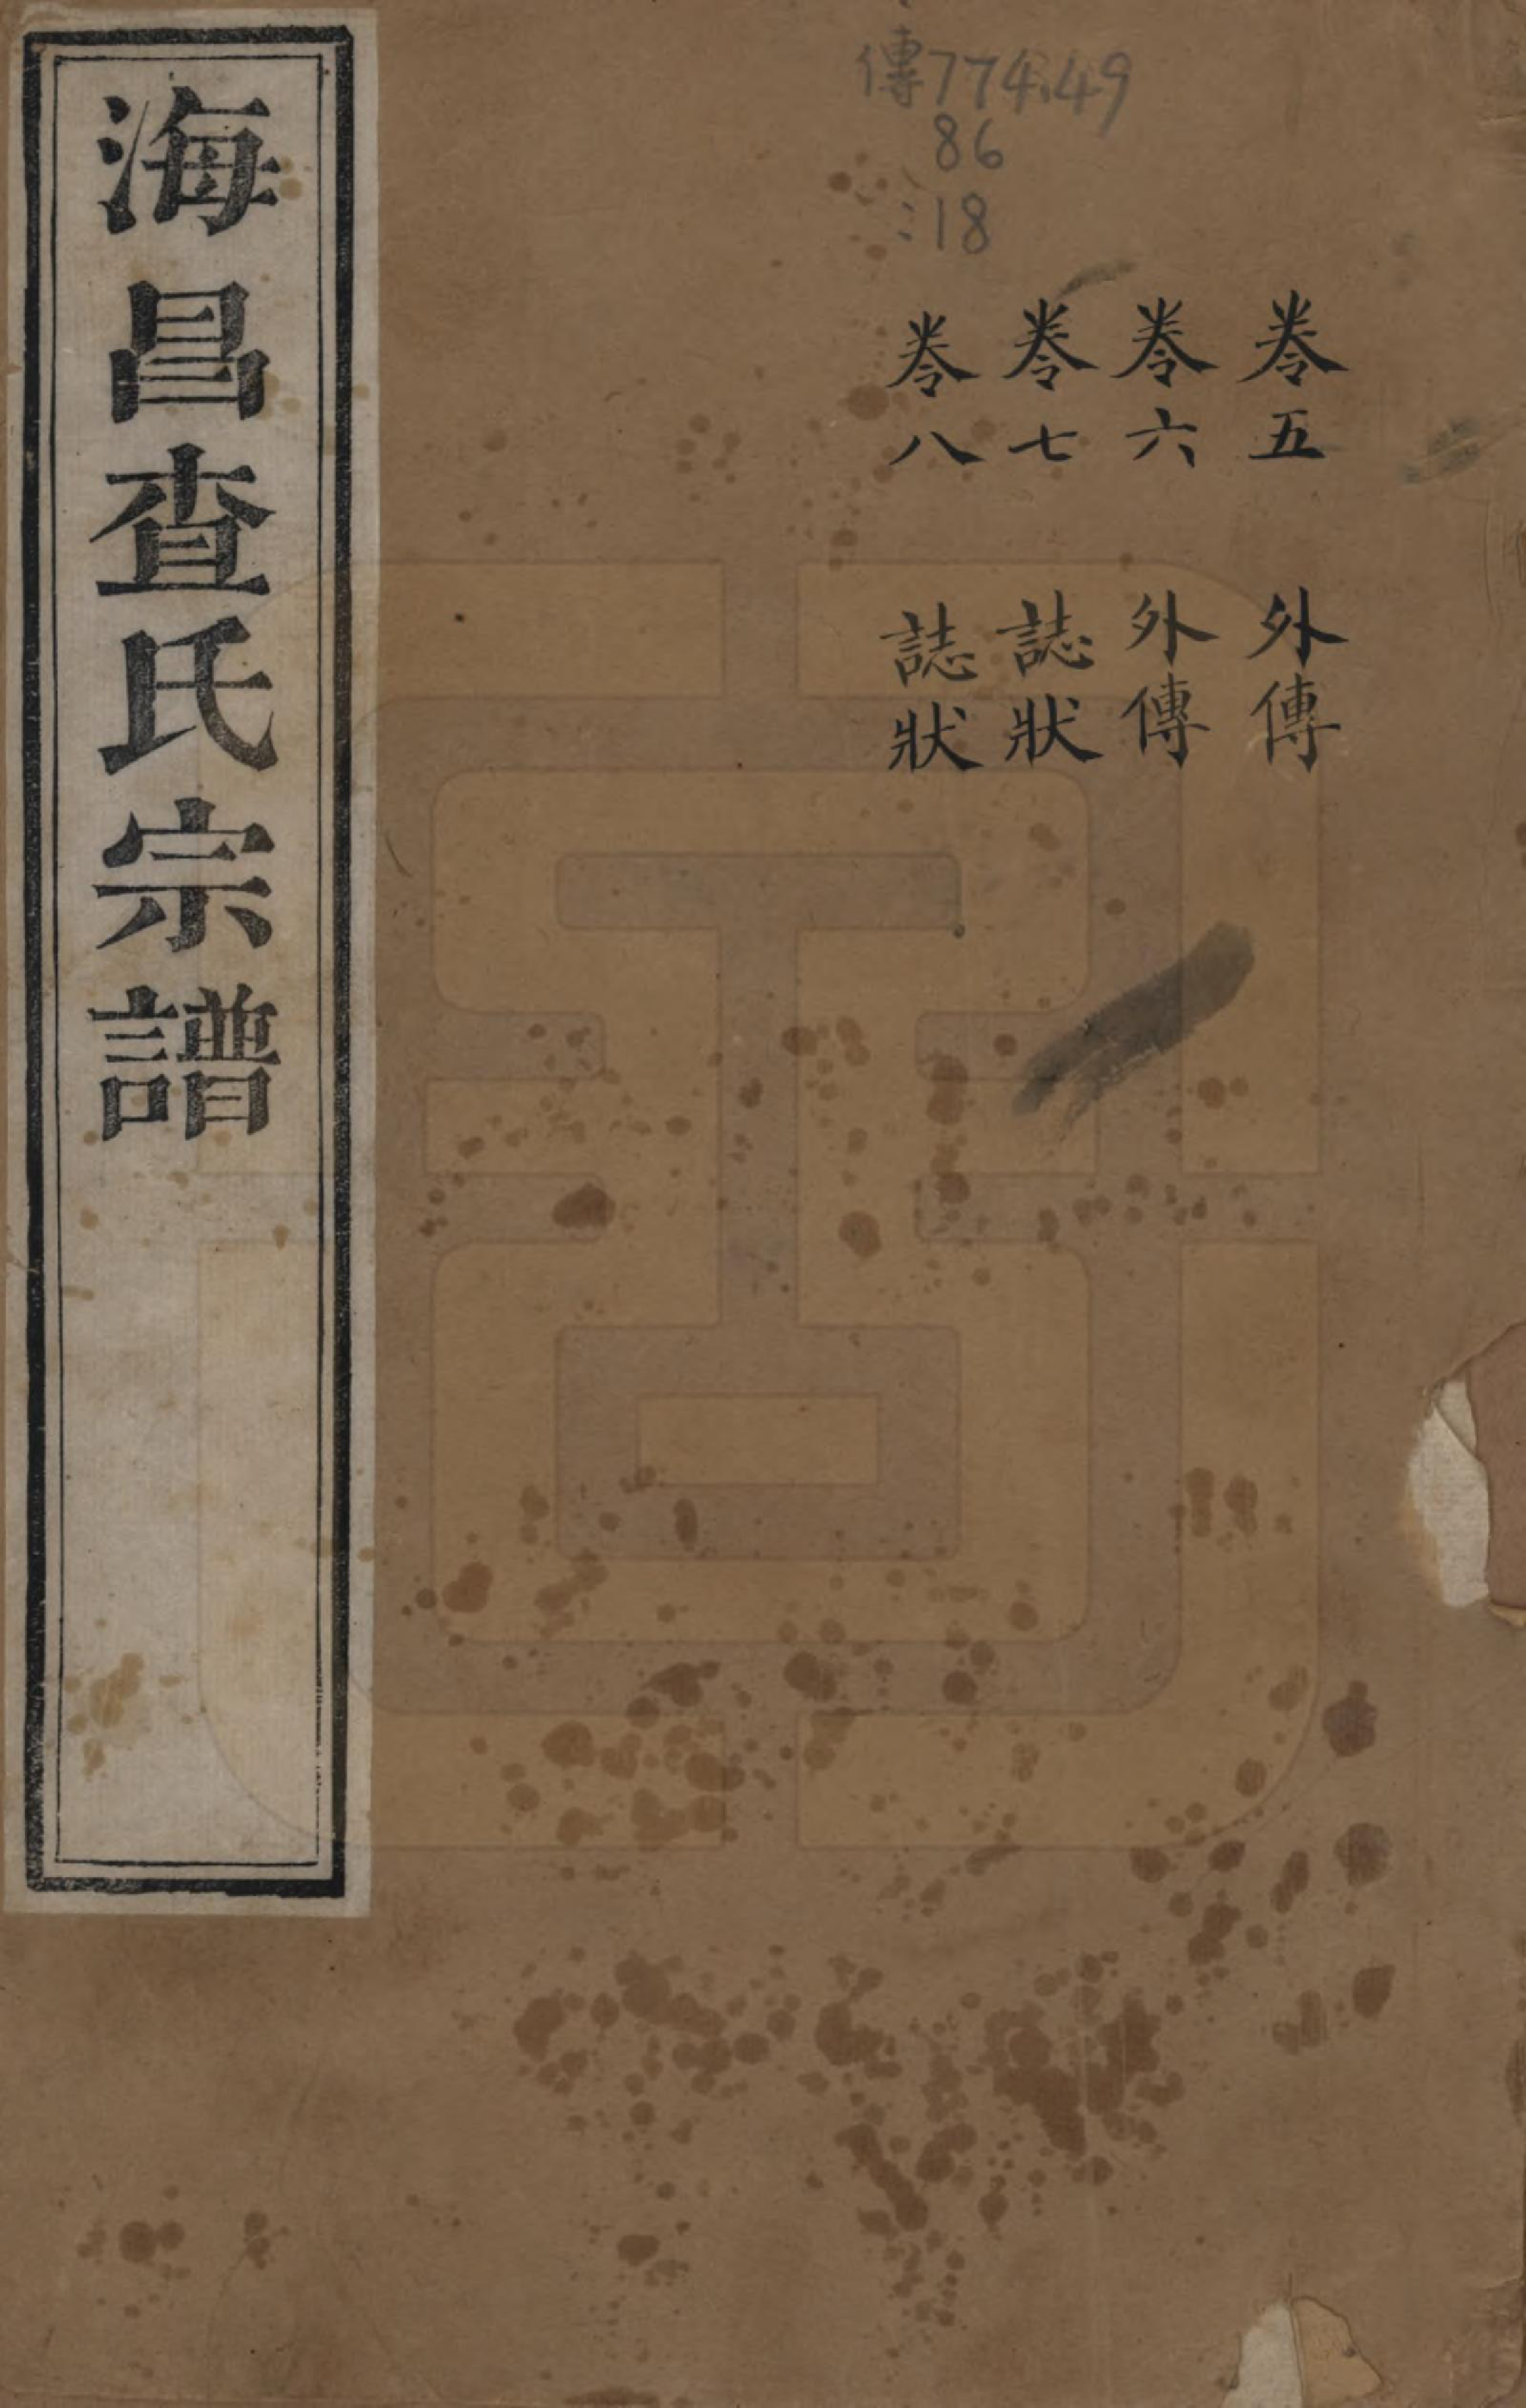 傳774.49
86
:18
卷五 外傳
卷六 外傳
卷七 誌狀
卷八 誌狀
海昌查氏宗譜